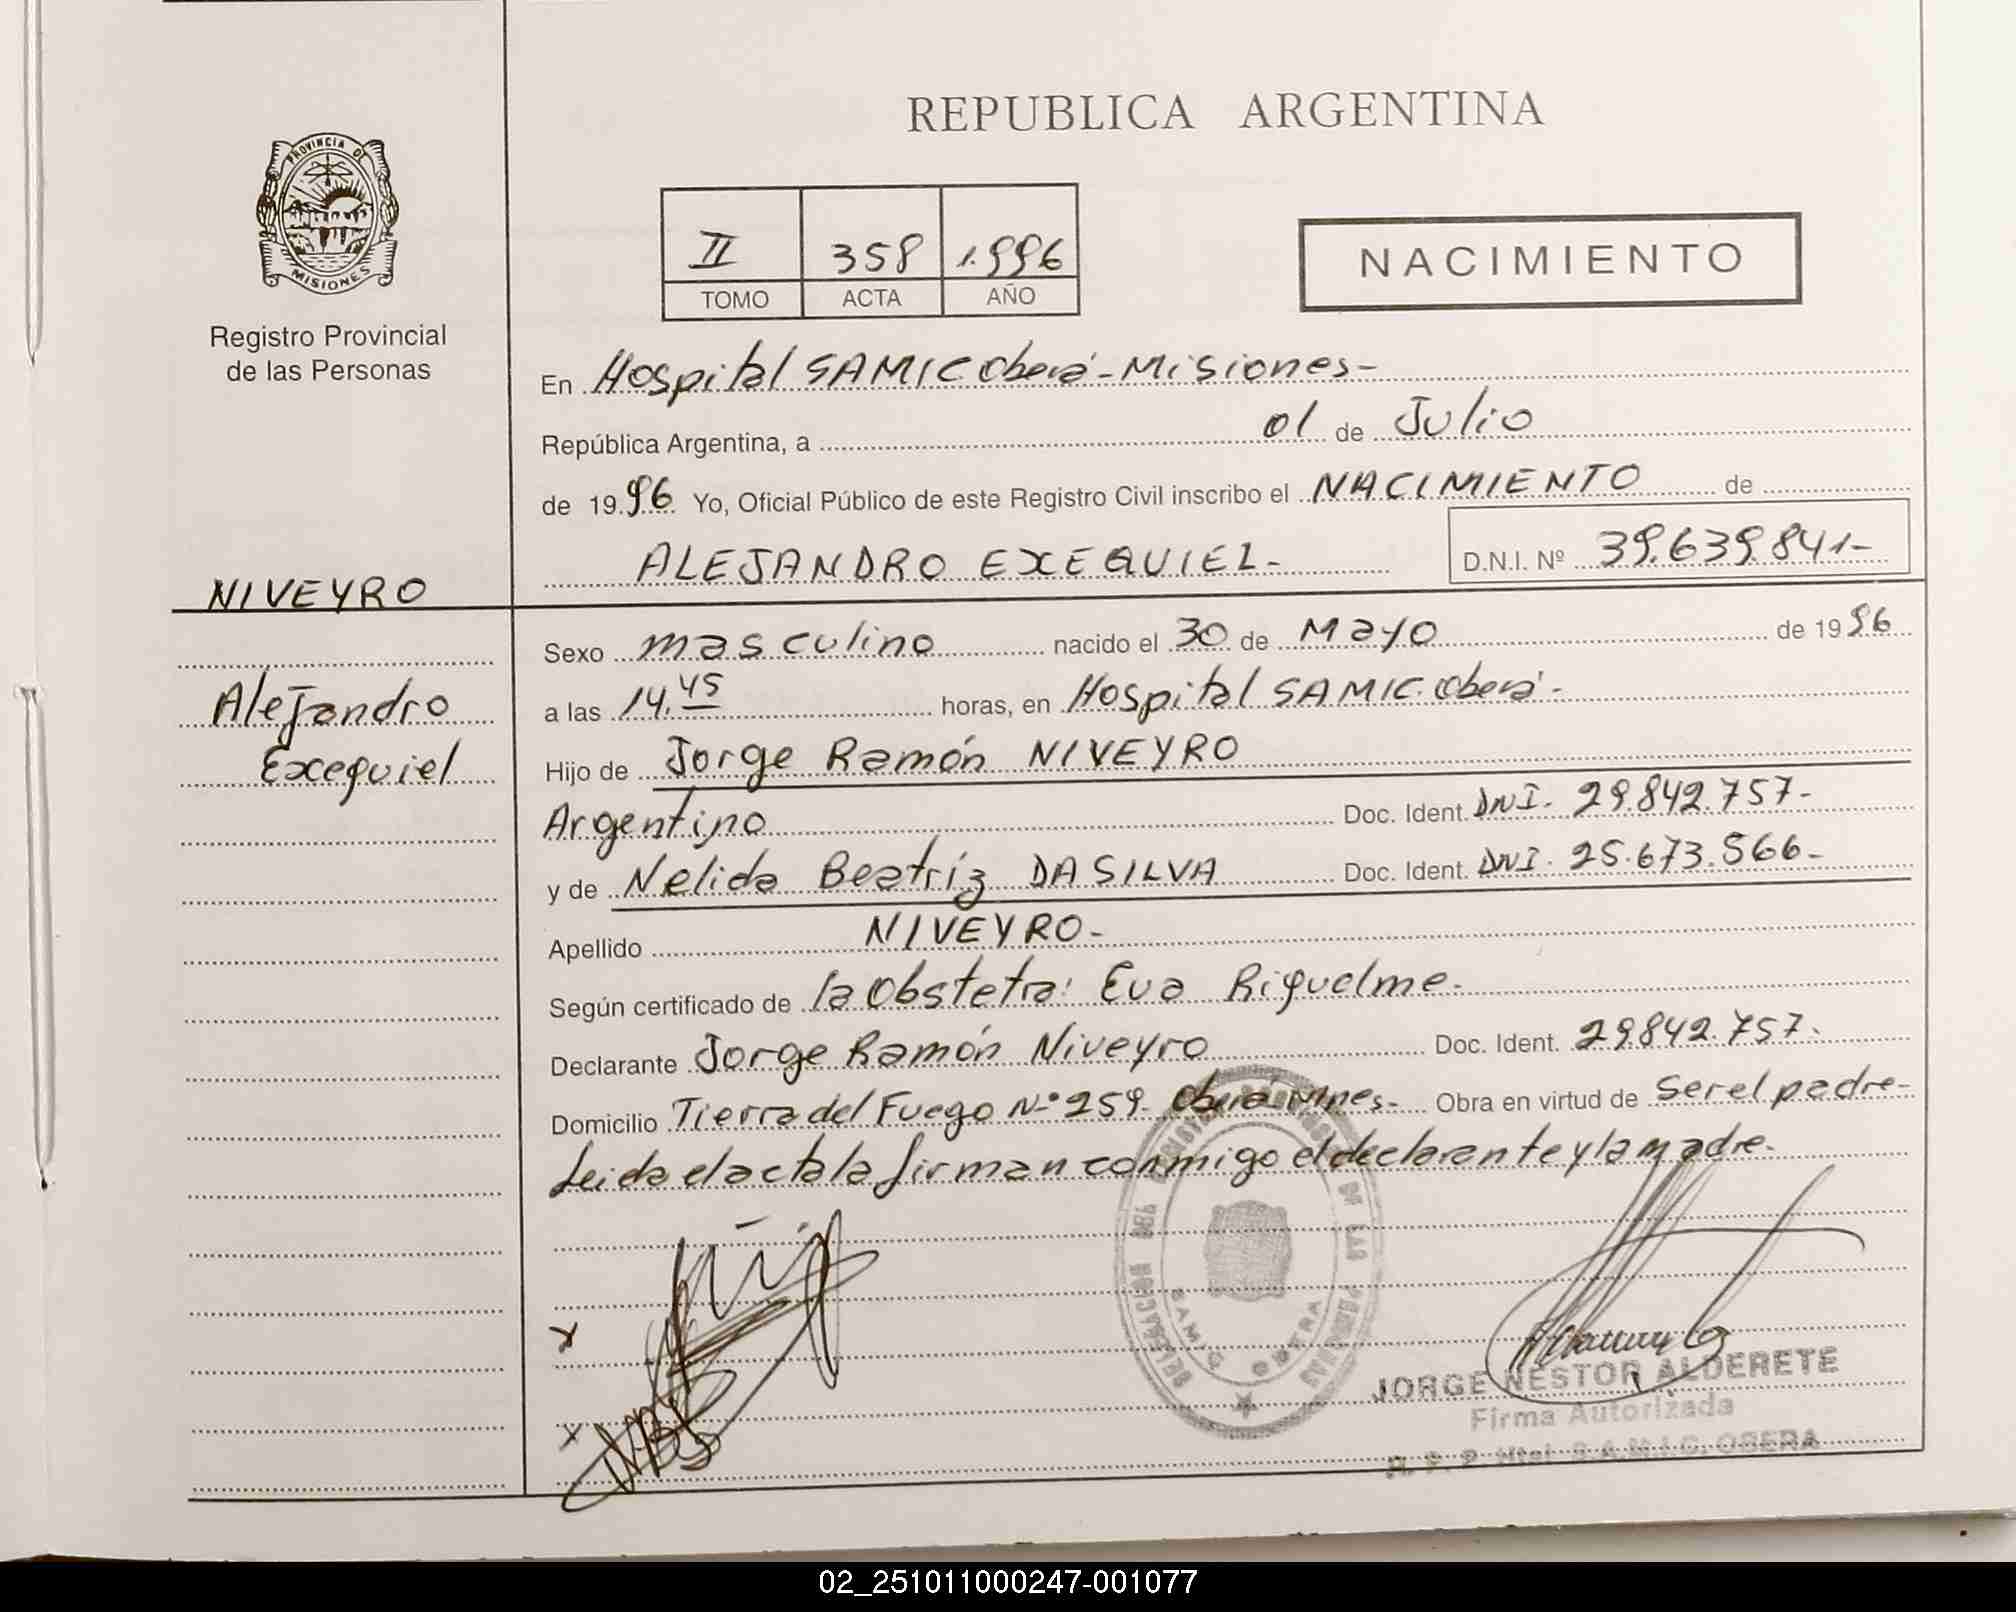 REPUBLICA ARGENTINA
PROVINCIA DE
MISIONES
Registro Provincial
de las Personas
II 358 1.996
TOMO ACTA AÑO
NACIMIENTO
En Hospital SAMIC Oberá - Misiones -
República Argentina, a 01 de Julio
de 19 96 Yo, Oficial Público de este Registro Civil inscribo el NACIMIENTO de
ALEJANDRO EXEQUIEL - D.N.I. Nº 39.639.841-
NIVEYRO
Alejandro
Exequiel
Sexo masculino nacido el 30 de Mayo de 19 96
a las 14,45 horas, en Hospital SAMIC. Oberá -
Hijo de Jorge Ramón NIVEYRO
Argentino Doc. Ident. DNI. 29.842.757-
y de Nelida Beatríz DA SILVA Doc. Ident. DNI. 25.673.566-
Apellido NIVEYRO -
Según certificado de la Obstetra: Eva Riquelme.
Declarante Jorge Ramón Niveyro Doc. Ident. 29842.757.
Domicilio Tierra del Fuego N-º 259 Oberá Mnes - Obra en virtud de Ser el padre -
Leida el acta la firman conmigo el declarante y la madre.
x
x
DELEGACION DEL REGISTRO DE LAS PERSONAS
SAMIC OBERA
JORGE NESTOR ALDERETE
Firma Autorizada
R. P. P. Htal. S.A.M.I.C. OBERA
02_251011000247-001077